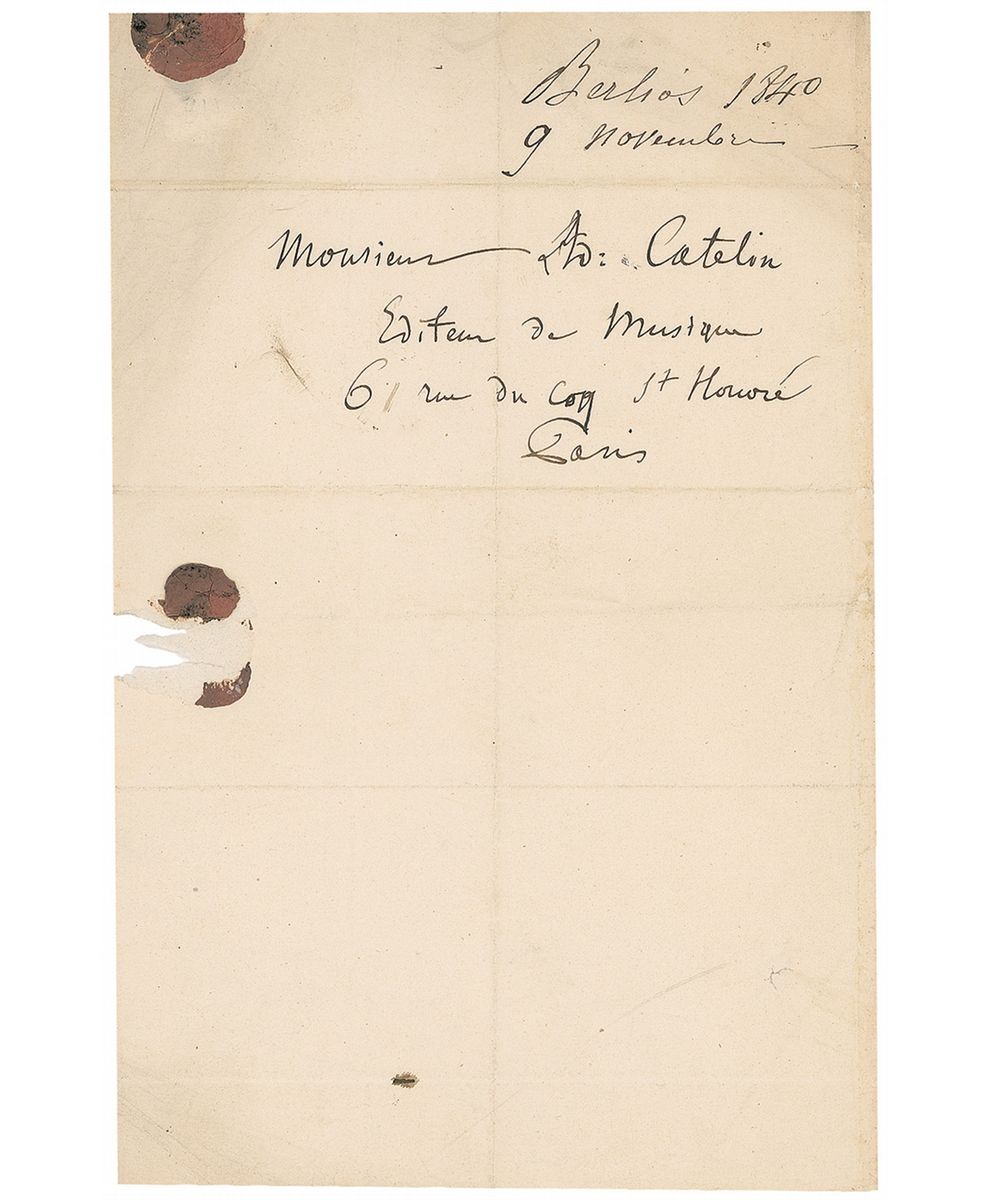 Berlios 1840
9 novembre —
Monsieur Ad: Catelin
Editeur de Musique
6 rue du coq St Honoré
Paris